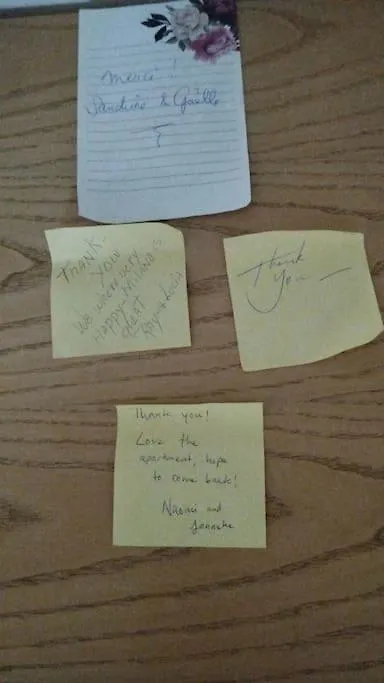 Merci !
Sandrine & Gaëlle
THANK
YOU
WE WERE VERY
HAPPY - MILANO IS
GREAT
ROY + LUCIA
Thank
You —
Thank you!
Love the
apartment, hope
to come back!
Naomi and